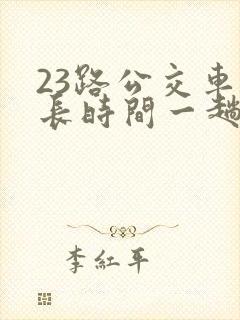 23路公交車
長時間一趟
李紅平